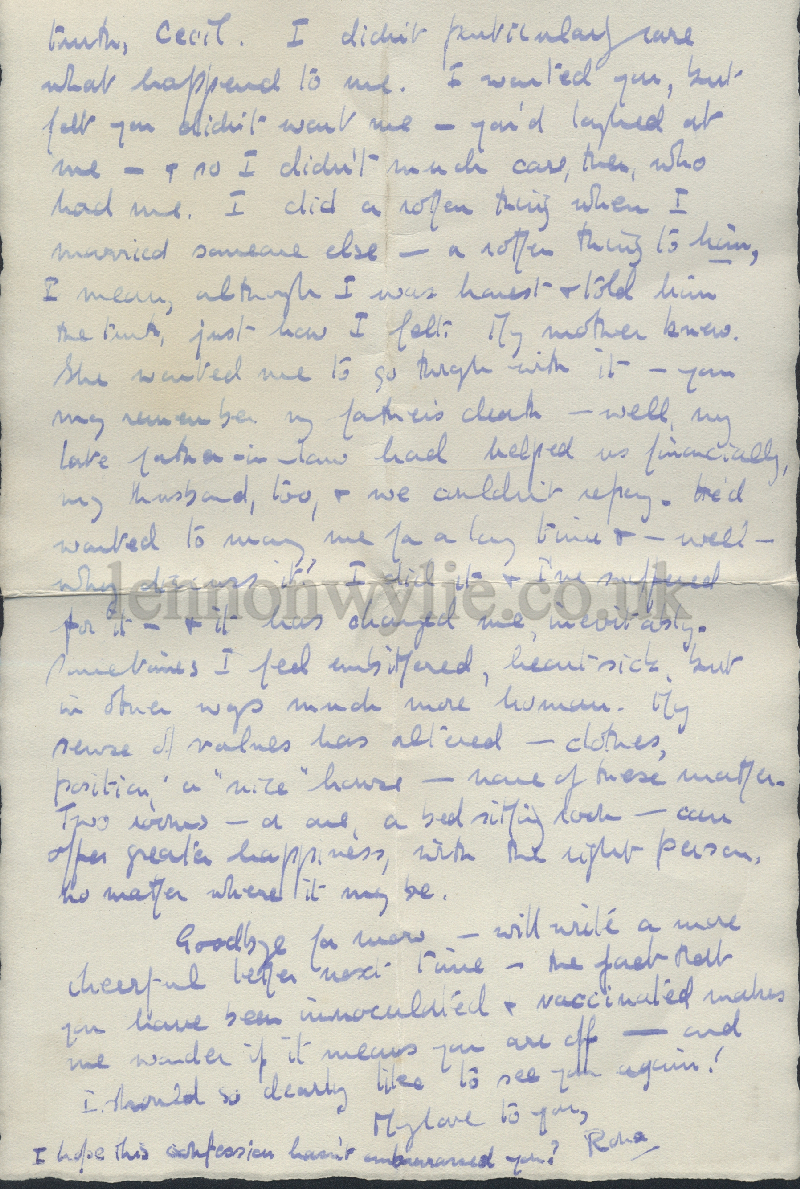 truth, Cecil. I didn't particularly care
what happend to me. I wanted you, but
felt you didn't want me – you'd laghed at
me – & so I didn't much care, then, who
had me. I did a rotten thing when I
married someone else – a rotten thing to him,
I mean, although I was honest & told him
the truth, just how I felt. My mother knew.
She wanted me to go throgh with it – you
may remember my father's death – well, my
late father-in-law had helped us financially,
my husband, too, & we couldn't repay. He'd
wanted to marry me for a long time & – well –
why discuss it? I did it & I've suffered
lennonwylie.co.uk
for it – & it has changed me, inevitably.
Sometimes I feel embittered, heartsick, but
in other ways much more human. My
sense of values has altered – clothes,
position, a "nice" house – none of these matter.
Two rooms – or one, a bed sitting room – can
offer greater happiness, with the right person,
no matter where it may be.
Goodbye for now – will write a more
cheerful letter next time – the fact that
you have been innoculated & vaccinated makes
me wonder if it means you are off – and
I should so dearly like to see you again!
My love to you,
Rona
I hope this confession hasn't embarrassed you?